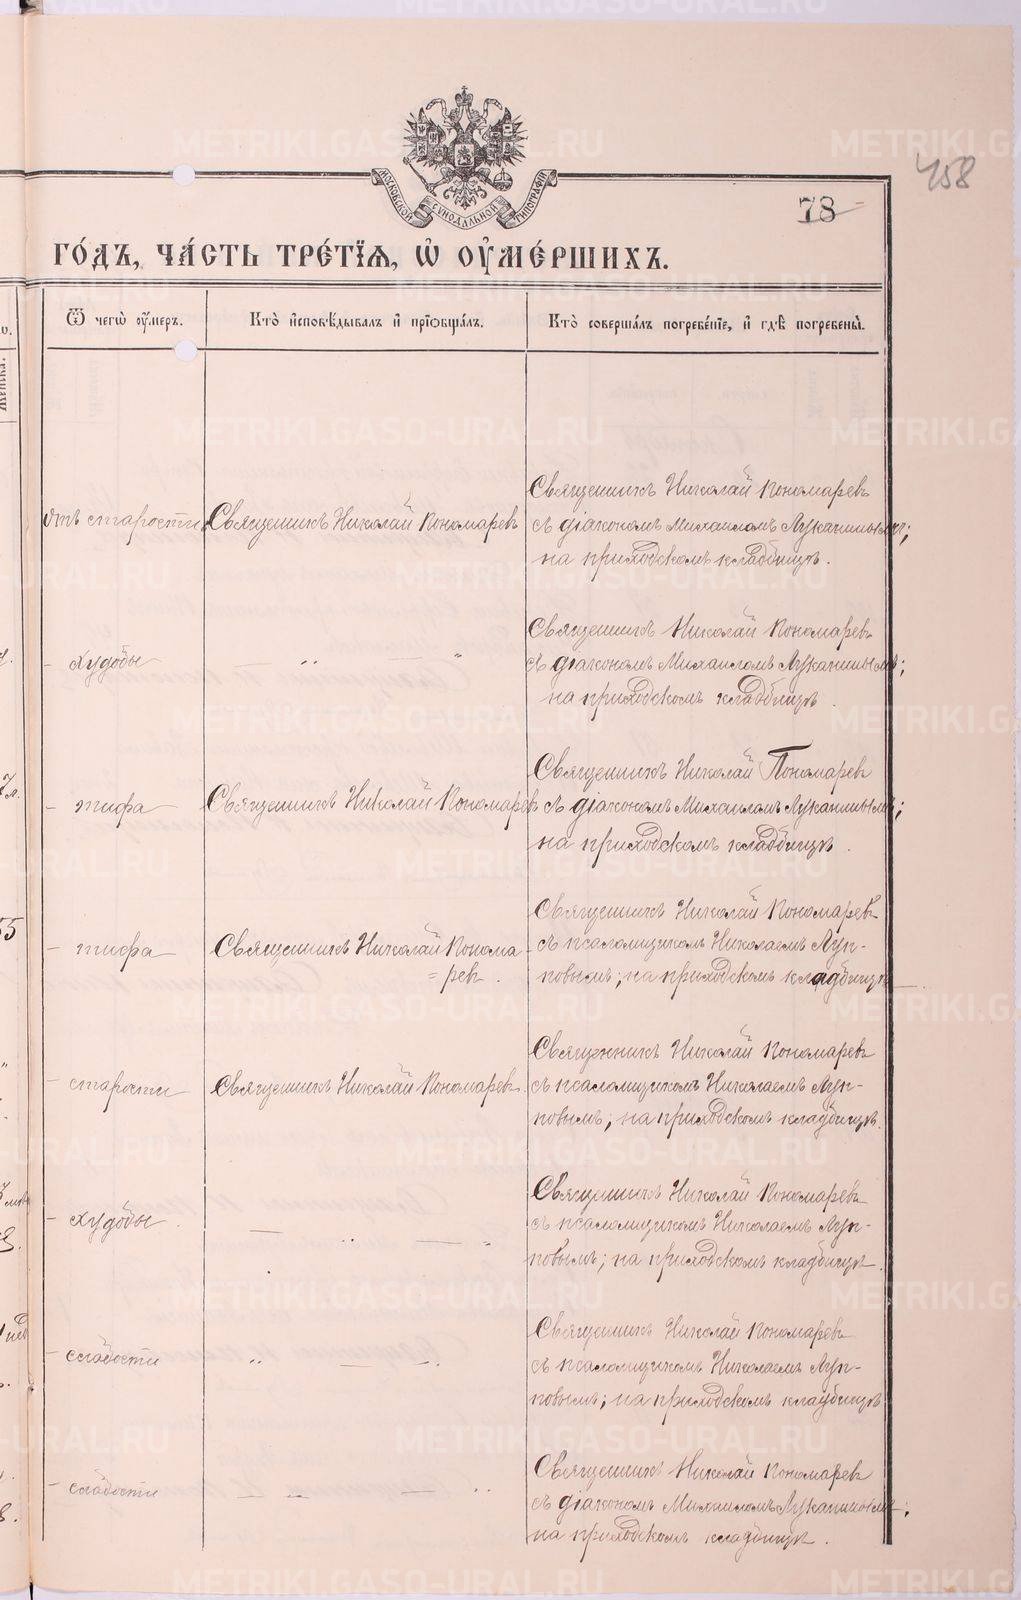 458
78
МОСКОВСКОЙ СѴНОДАЛЬНОЙ ТИПОГРАФІИ
ГО́ДЪ, ЧА́СТЬ ТРЕ́ТІѦ, Ѡ҆ ОУ҆МЕ́РШИХЪ.
Ѿ чегѡ̀ оу҆́меръ.
Кто̀ и҆сповѣ́дывалъ и҆ прїѡбща́лъ.
Кто̀ соверша́лъ погребе́нїе, и҆ гдѣ̀ погребены̀.
отъ старости
Священникъ Николай Пономаревъ
Священникъ Николай Пономаревъ
съ діакономъ Михаиломъ Луканинымъ;
на приходскомъ кладбищѣ.
- худобы
— " — "
Священникъ Николай Пономаревъ
съ діакономъ Михаиломъ Луканинымъ;
на приходскомъ кладбищѣ.
- тифа
Священникъ Николай Пономаревъ
Священникъ Николай Пономаревъ
съ діакономъ Михаиломъ Луканинымъ;
на приходскомъ кладбищѣ.
- тифа
Священникъ Николай Понома
= ревъ.
Священникъ Николай Пономаревъ
съ псаломщикомъ Николаемъ Луп-
повымъ; на приходскомъ кладбищѣ
- старости
Священникъ Николай Пономаревъ
Священникъ Николай Пономаревъ
съ псаломщикомъ Николаемъ Луп-
повымъ; на приходскомъ кладбищѣ.
- худобы
— " — "
Священникъ Николай Пономаревъ
съ псаломщикомъ Николаемъ Луп-
повымъ; на приходскомъ кладбищѣ.
- слабости
" — "
Священникъ Николай Пономаревъ
съ псаломщикомъ Николаемъ Луп-
повымъ; на приходскомъ кладбищѣ
- слабости
— — — "
Священникъ Николай Пономаревъ
съ діакономъ Михаиломъ Луканинымъ;
на приходскомъ кладбищѣ.
METRIKI.GASO-URAL.RU